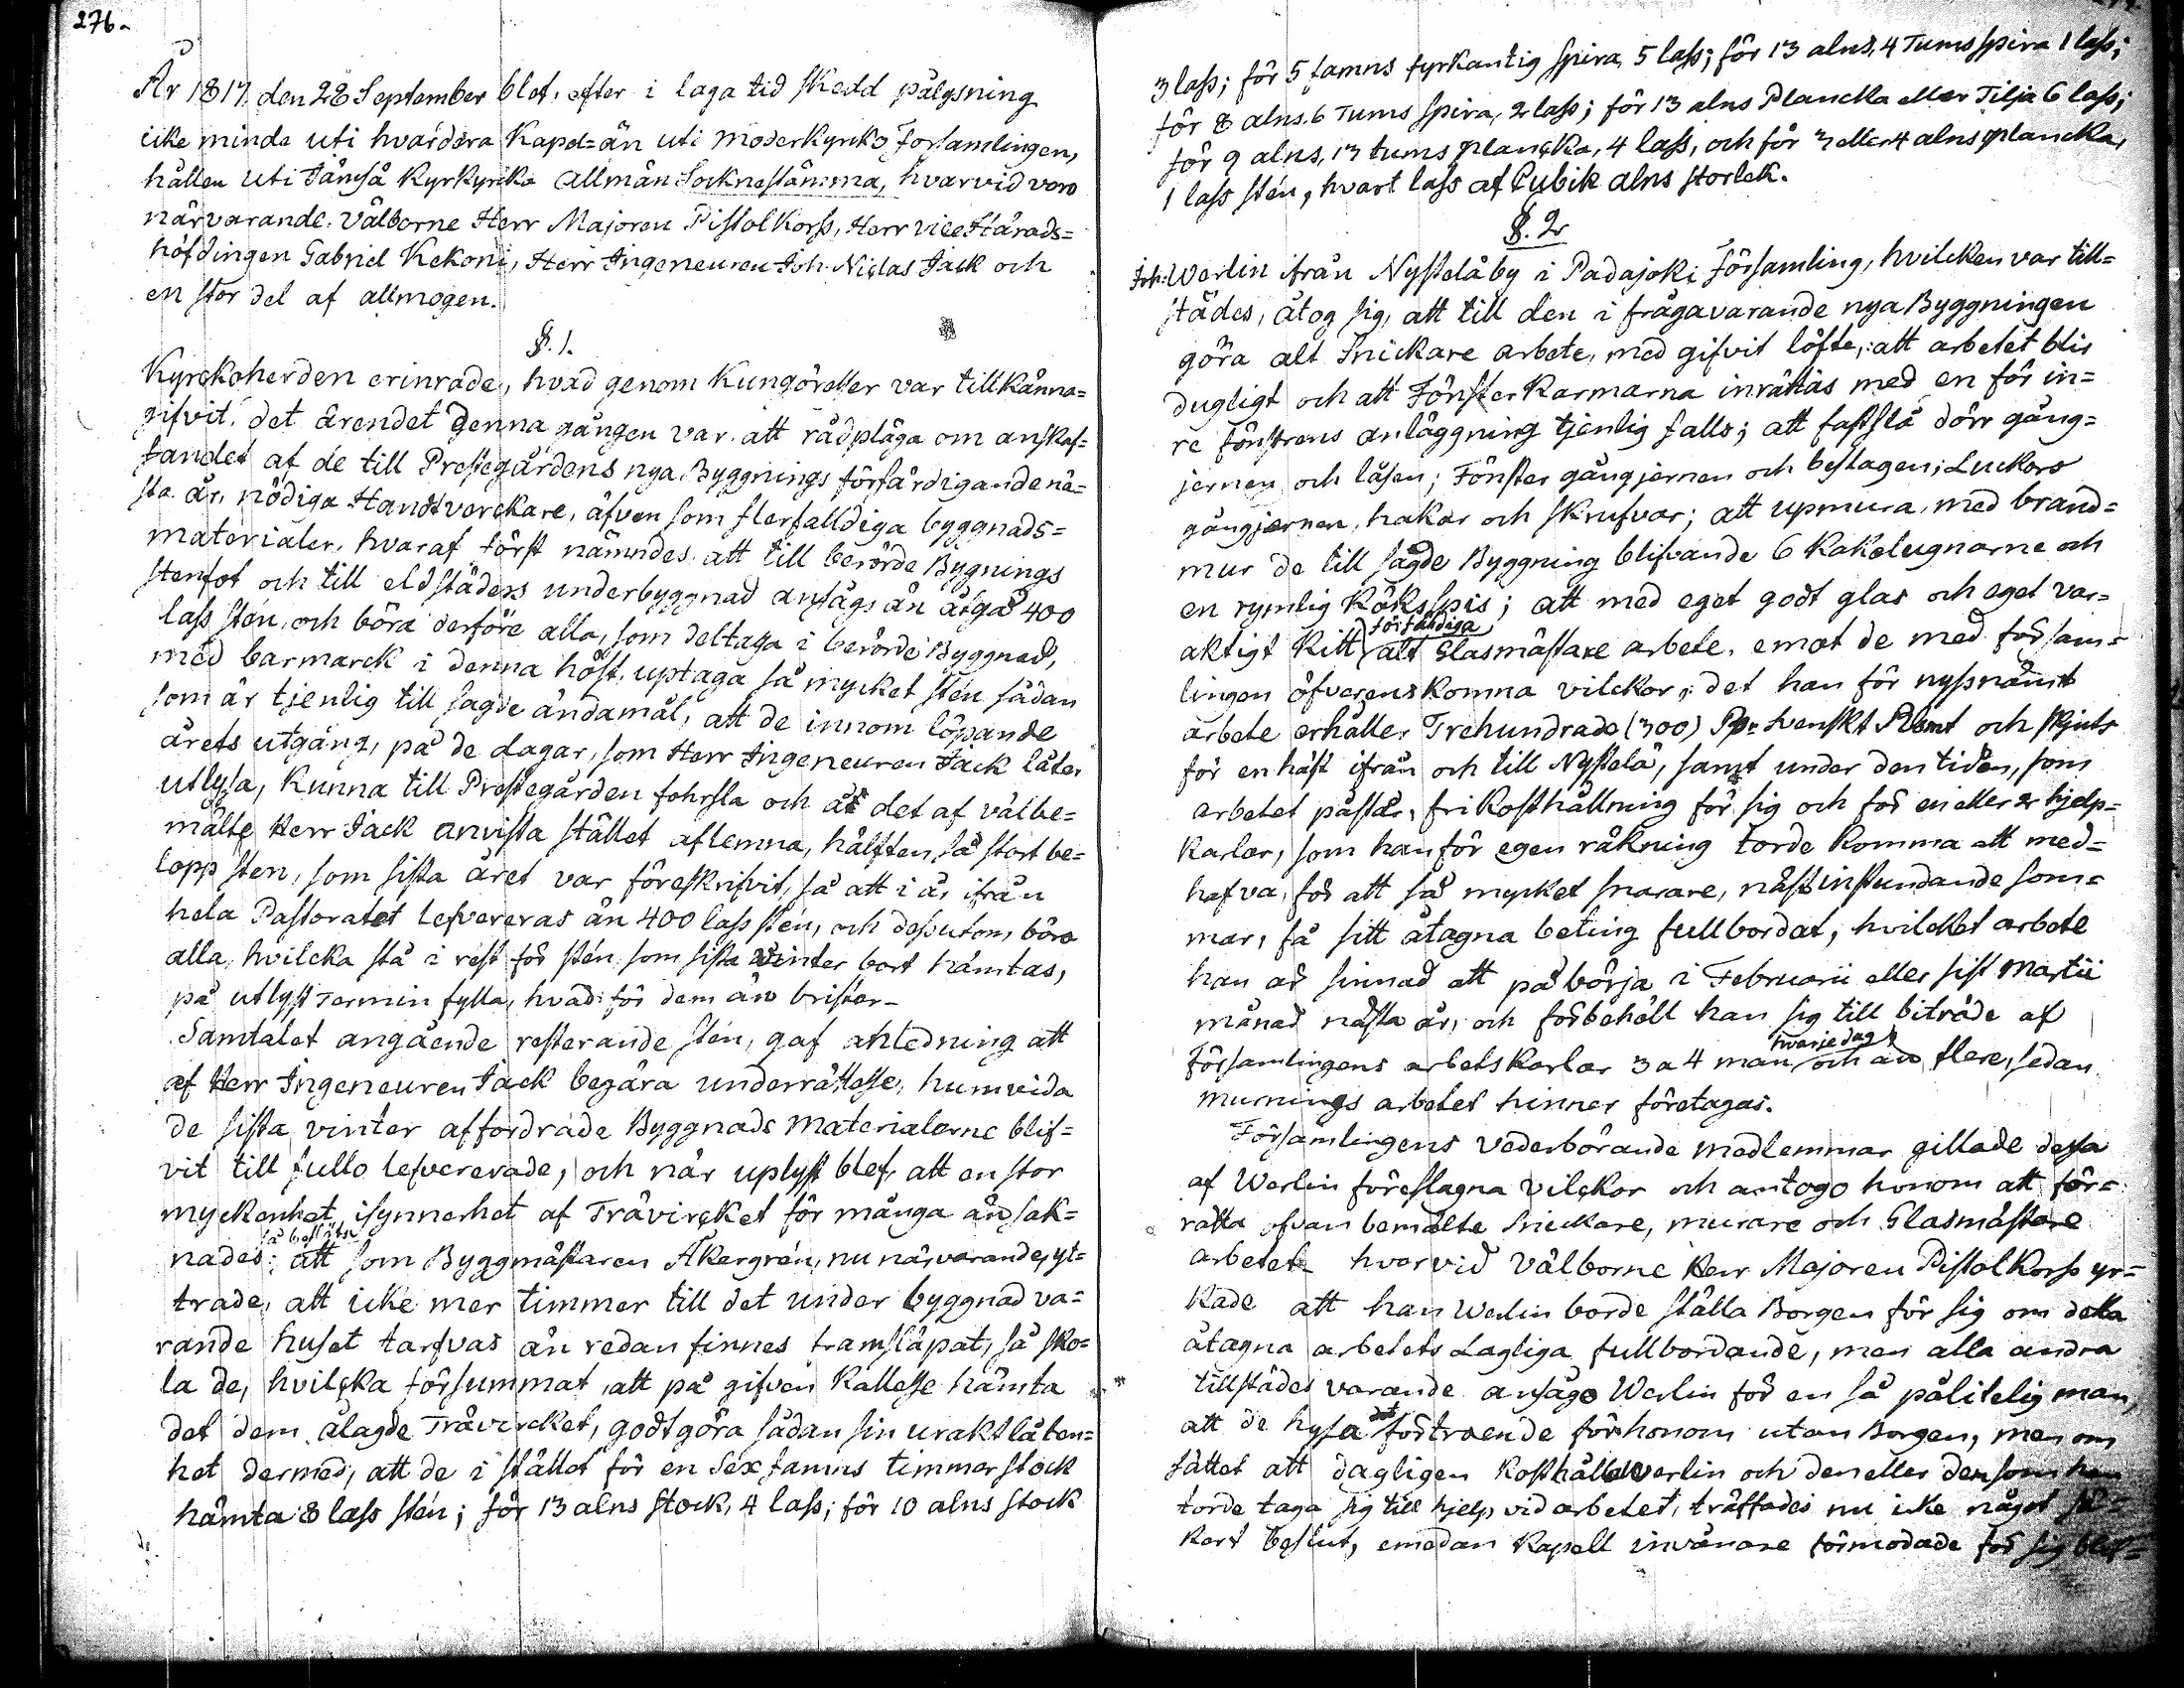 276.
År 1817, den 28 September blef, efter i laga tid skedd pålysning
icke mindr uti hvardera Kapel= än uti moderkyrko Församlingen,
hållen uti Jämsä Kyrkyrka allmän Socknestämma, hvarvid voro
närvarande. Välborne Herr Majoren Pistolkorss, Herr vice Härads=
höfdingen Gabriel Kekoni, Herr Ingeneuren Joh. Niclas Jack och
en stor del af allmogen.
§. 1.
Kyrckoherden erinrade, hvad genom Kungörelser var tillkänna=
gifvit. det ärendet denna gången var. att rådpläga om anskaf=
fandet af de till Prestegårdens nya Byggnings förfärdigande nä=
sta år, nödiga Handtverckare, äfven som flerfalldiga byggnads=
materialer. hvaraf först nämndes att till berörde Bygnings
stenfot och till eldstäders underbyggnad ansågs än åtgå 400
lass sten, och böra derföre alla, som deltaga i berörde Byggnad,
med barmarck i denna höst, uptaga så mycket stén sådan
som är tjenlig till sagde ändamål, att de innom löpande
årets utgång, på de dagar, som Herr Ingeneuren Jack låter
utlysa, kunna till Prestegården fohrsla och å det af välbe=
mälte Herr Jack anvista stället aflemna, hälften så stort be=
lopp sten, som sista året var föreskrifvit, så att i år ifrån
hela Pastoratet lefvereras än 400 lass stén, och dessutom, böra
alla, hvilcka stå i rest för stén som sista vinter bort hämtas,
på utlyst Termin fylla, hvad för dem än brister_
Samtalet angående resterande stén, gaf anledning att
af Herr Ingeneuren Jack begära underrättelse, hurruvida
de sista vinter affordrade Byggnads Materialerne blif=
vit till fullo lefvererade, och när uplyst blef, att en stor
myckenhet isynnerhet af Trävircket för många än sak=
så beslöts
nades; att som Byggmästaren Åkergrén, nu närvarande, yt=
trade, att icke mer timmer till det under byggnad va=
rande huset tarfvas än redan finnes framsläpat, så sko=
la de, hvilcka försummat, att på gifven kallelse hämta
det dem ålagde Trävircket, godtgöra sådan sin uraktlåten=
het dermed, att de i stället för en Sex famns timmer stock
hämta 8 lass stén; för 13 alns stock, 4 lass; för 10 alns stock
3 lass; för 5 famns fyrkantig spira 5 lass; för 13 alns, 4 Tums spira 1 lass;
för 8 alns 6 Tums spira, 2 lass; för 13 alns Plancka eller Tilja 6 lass;
för 9 alns, 13 tums plancka, 4 lass, och för 3 eller 4 alns plancka,
1 lass stén, hvart lass af Cubik alns storlek.
§. 2
Joh: Werlin ifrån Nystelä by i Padajoki Församling, hvilcken var till=
städes, åtog sig, att till den i fråga varande nya Byggningen
göra alt Snickare arbete, med gifvit löfte, att arbetet blir
dugligt och att Fönster karmarna inrättas med en för in=
re fönstrens anläggning tjenlig falls; att fastslå dörr gång=
jernen och låsen; Fönster gångjernen och beslagen; Luckors
gångjernen, hakar och skrufvar; att upmura, med brand=
mur de till sagde Byggning blifvande 6 Kakelugnarne och
en rymlig Köksspis; att med eget godt glas och eget var=
förfärdiga
aktigt Kitt alt Glasmästare arbete. emot de med försam=
lingen öfverenskomna vilckor; det han för nyssnämt
arbete erhåller Trehundrade (300) Rr: Svenskt Rbmt och skjuts
för en häst ifrån och till Nystelä, samt under den tiden, som
arbetet påstår, fri Kosthållning för sig och för en eller 2r hjelp=
karlar, som han för egen räkning torde komma att med=
hafva, för att så mycket snarare, näst instundande som=
mar, få sitt åtagna beting fullbordat, hvilcket arbete
han är sinnad att påbörja i Februarii eller sist Martii
månad nästa år, och förbehöll han sig till biträde af
hvarje dag
församlingens arbetskarlar 3 a 4 man och än flere, sedan
murnings arbetet hinner företagas.
Församlingens vederbörande medlemmar gillade dessa
af Werlin föreslagna vilckor och antogo honom att för=
rätta ofvan bemälte Snickare, murare och Glasmästare
arbetet_ hvarvid Välborne Herr Majoren Pistolkorss yr=
kade att han Werlin borde ställa Borgen för sig om detta
åtagna arbetets Lagliga fullbordande, men alla andra
tillstädes varande ansågo Werlin för en så pålitelig man,
det
att de hysa förtroende för honom utan Borgen, men om
sättet att dagligen kosthålla Werlin och den eller den som han
torde taga sig till hjelp vid arbetet, träffades nu icke något sä=
kert beslut, emedan Kapell invånare förmodade för sig blif=